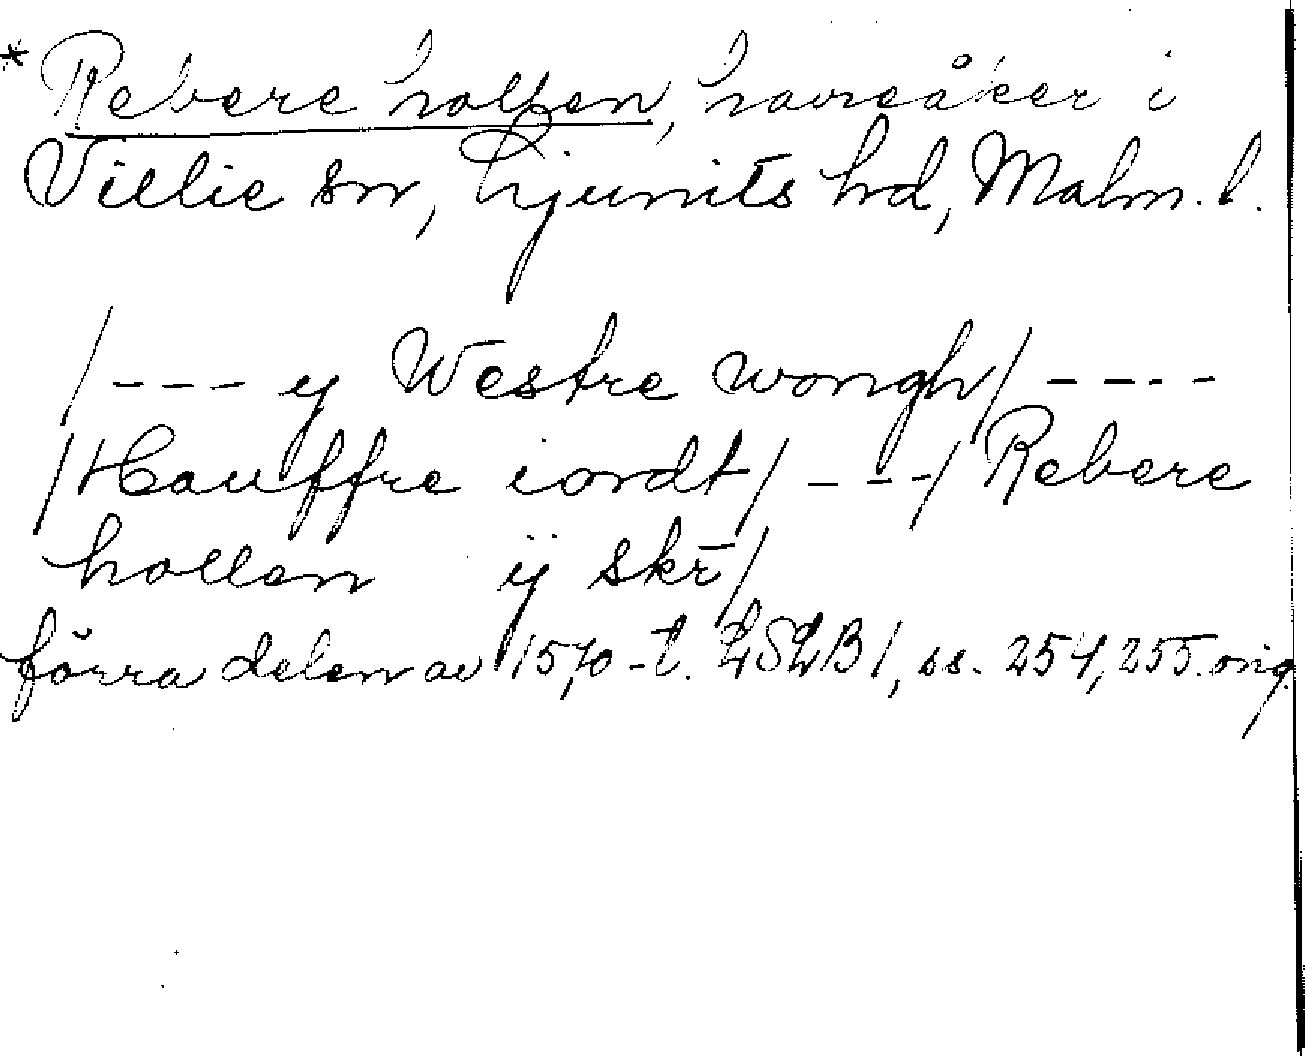 * Rebere hollen, havreåker i
Villie sn, Ljunits hd, Malm. l.
/--- y Westre wongh/ ----
/Hauffre iordt/ ---/ Rebere
hollen ij skr̄/
förra delen av 1570-t. LSLB 1, ss. 254, 255. orig.